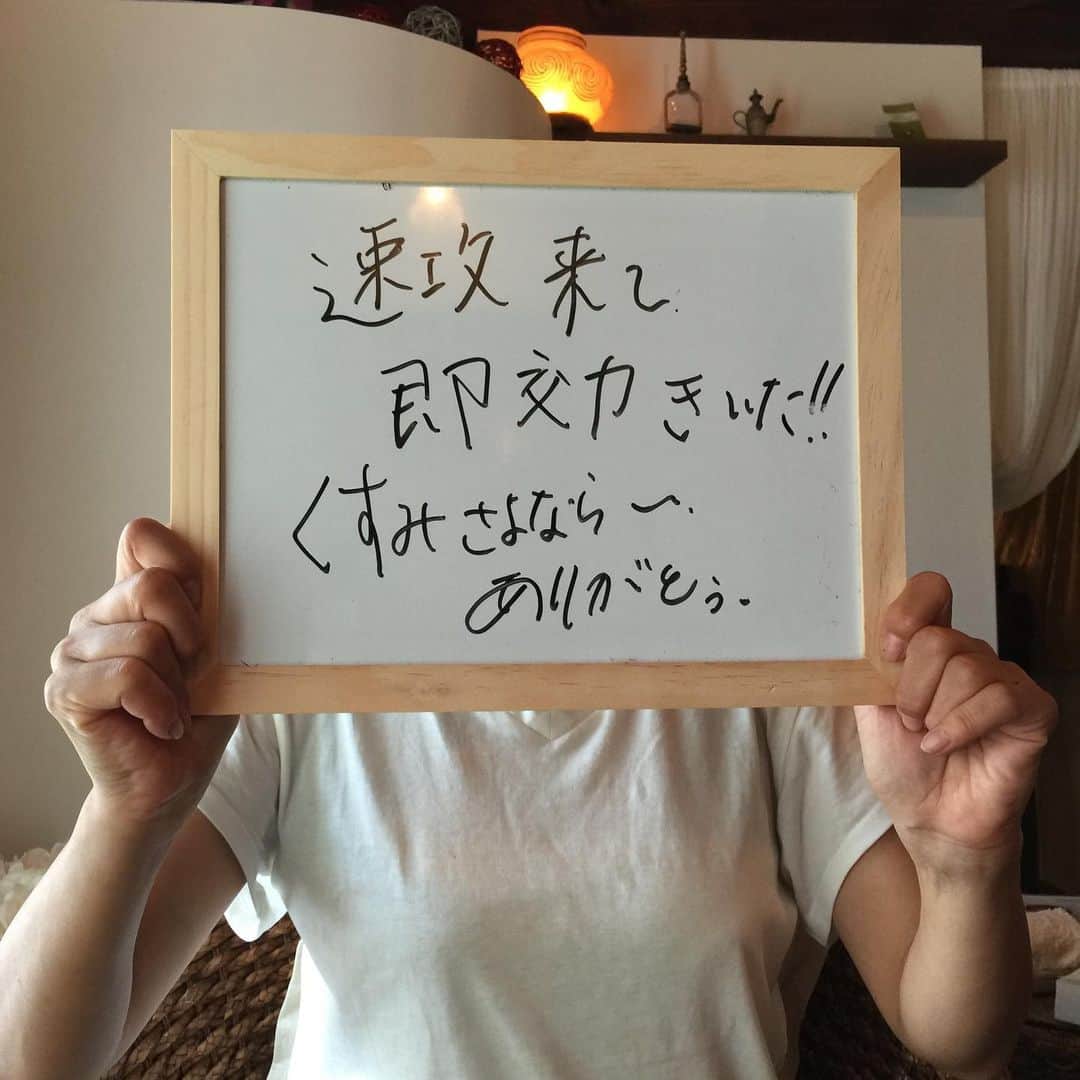 速攻来て
即交力きいた!!
くすみさよなら〜.
ありがとう.